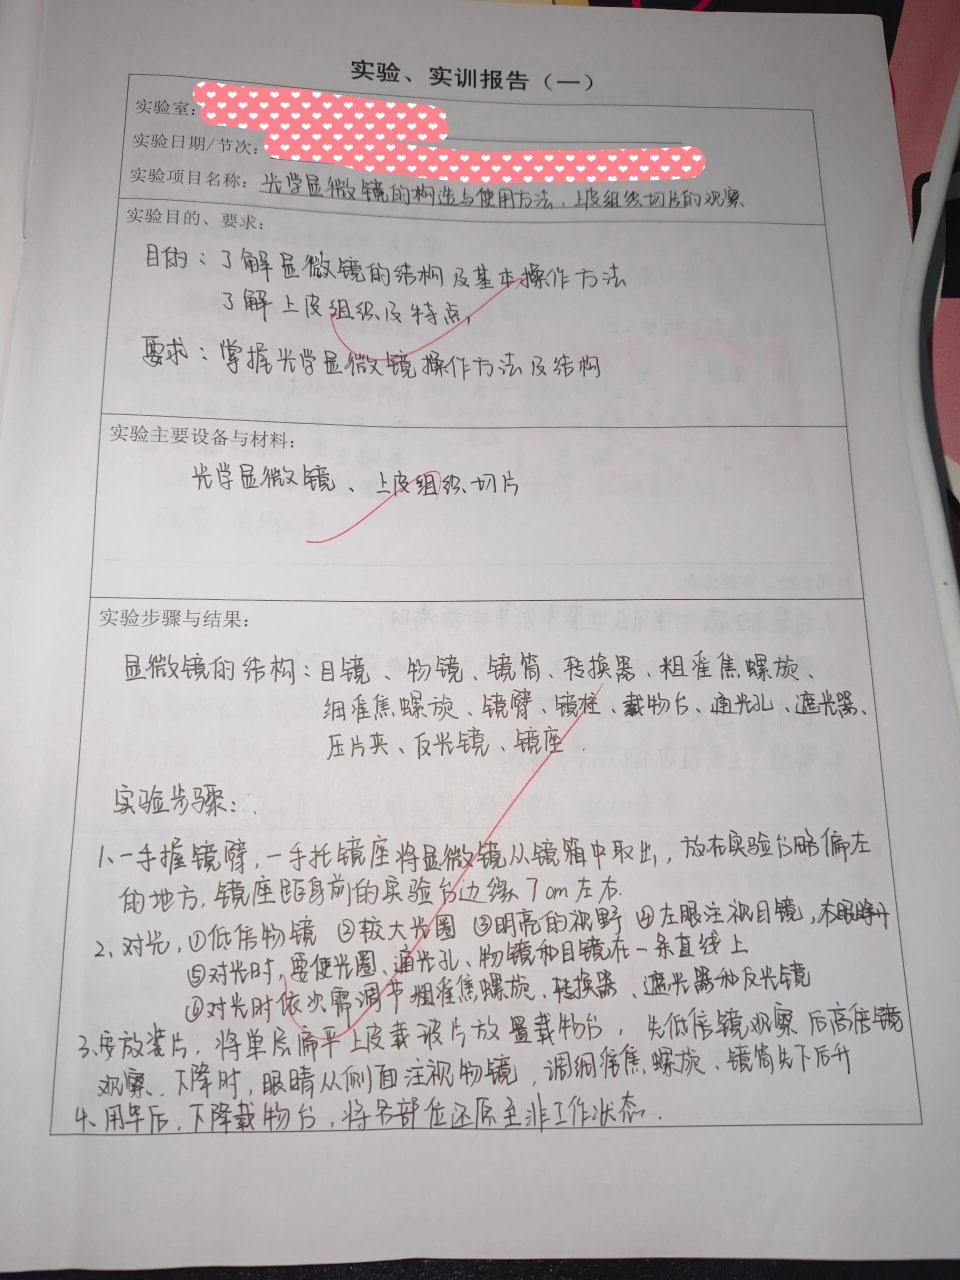 实验、实训报告（一）
实验室：
实验日期/节次：
实验项目名称：光学显微镜的构造与使用方法、上皮组织切片的观察
实验目的、要求：
目的：了解显微镜的结构及基本操作方法
了解上皮组织及特点，
要求：掌握光学显微镜操作方法及结构
实验主要设备与材料：
光学显微镜、上皮组织切片
实验步骤与结果：
显微镜的结构：目镜、物镜、镜筒、转换器、粗准焦螺旋、
细准焦螺旋、镜臂、镜柱、载物台、通光孔、遮光器、
压片夹、反光镜、镜座.
实验步骤：
1、一手握镜臂，一手托镜座将显微镜从镜箱中取出，放在实验台略偏左
的地方，镜座距身前的实验台边缘7cm左右.
2、对光，①低倍物镜 ②较大光圈 ③明亮的视野 ④左眼注视目镜，右眼睁开
⑤对光时，要使光圈、通光孔、物镜和目镜在一条直线上
⑥对光时依次需调节粗准焦螺旋、转换器、遮光器和反光镜
3、安放装片，将单层扁平上皮载玻片放置载物台，先低倍镜观察后高倍镜
观察、下降时，眼睛从侧面注视物镜，调细准焦螺旋、镜筒先下后升
4、用毕后，下降载物台，将各部位还原至非工作状态.